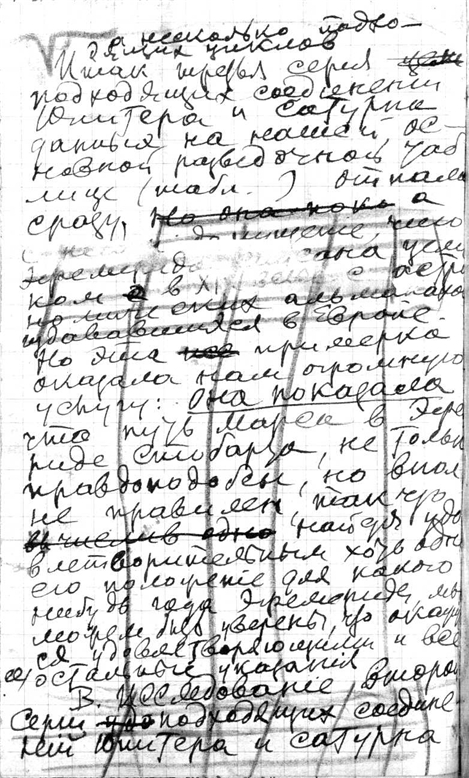 а несколько подхо-
дящих циклов
Итакъ третья серия
подходящих соединений
Юпитера и Сатурна
данныя на нашей ос-
новной разведочной таб
лице (табл. ) отпала
сразу. Но она пока а
с
Эфемерида
ком в XI
номических альманахо
издававшихся в Европе.
Но эта примерка
оказала нам огромную
услугу: она показала
что путь Марса в Эфе
риде Стобарта, не тольк
правдоподобен, но впол
не правилен, так что
вычислив одно найдя удо
влетворительным хоть одно
его положение для какого
нибудь года Эфемериде, мы
можем быть уверены, что окажу
ся удовлетворяющими и все
остальные указания
В. Исследование второй
серии подходящих соедине-
ний Юпитера и Сатурна